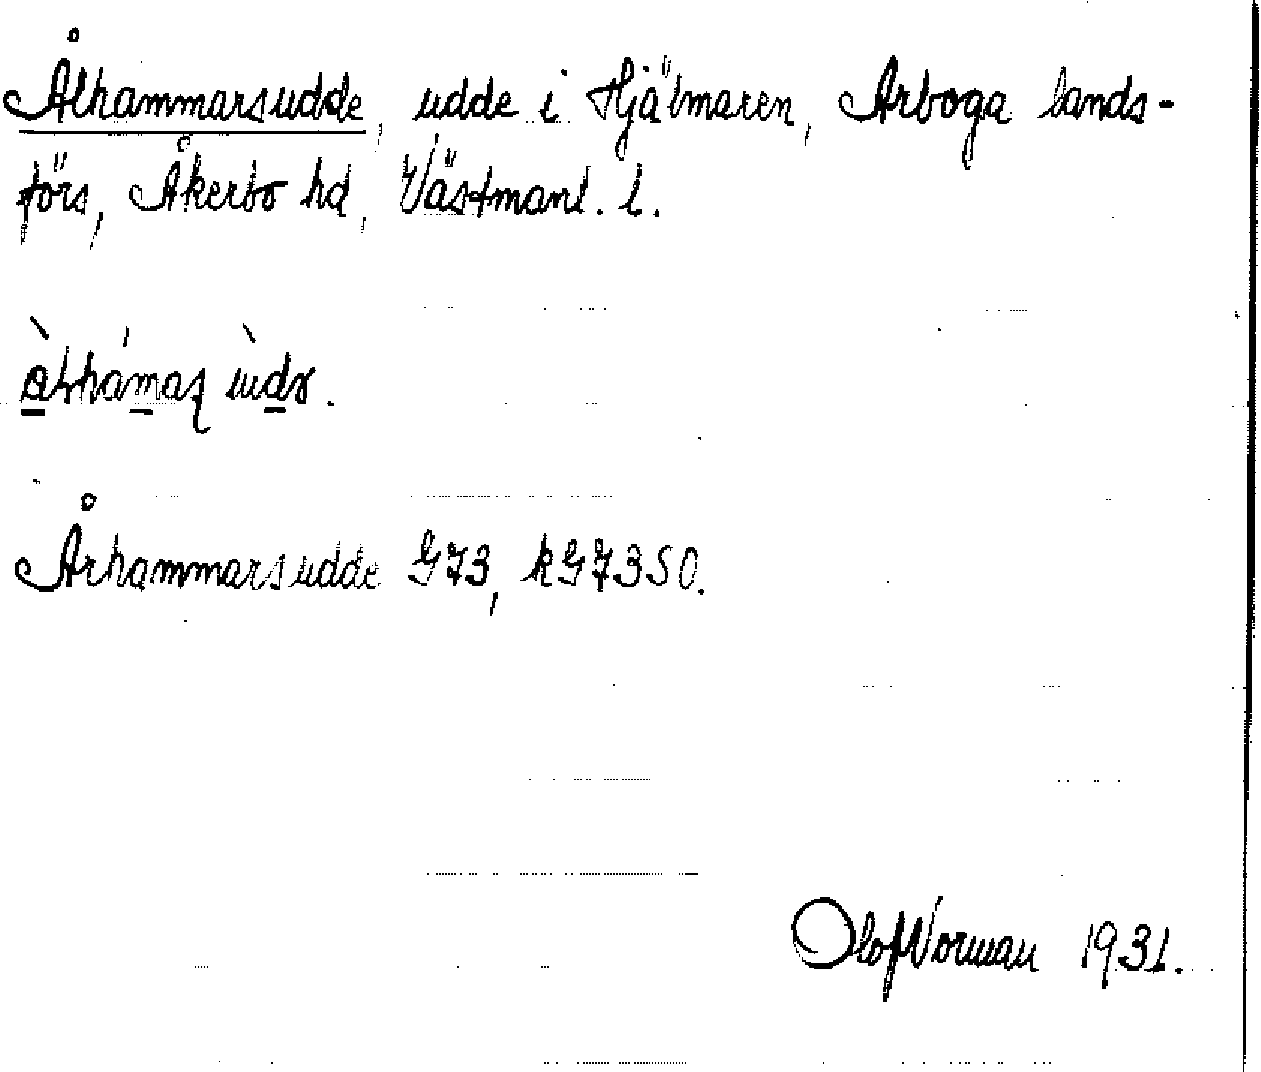 Ålhammarsudde, udde i Hjälmaren, Arboga lands-
förs, Åkerbo hd, Västmanl. l.
Århammarsudde G73, kG73SO.
Olof Norman 1931.